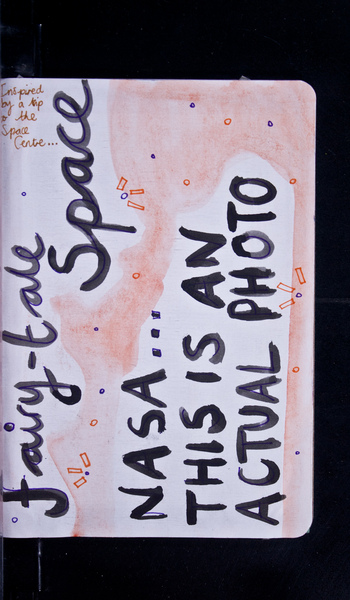 Inspired
by a trip
to the
Space
Centre...
Fairy-tale
Space
NASA...
THIS IS AN
ACTUAL PHOTO